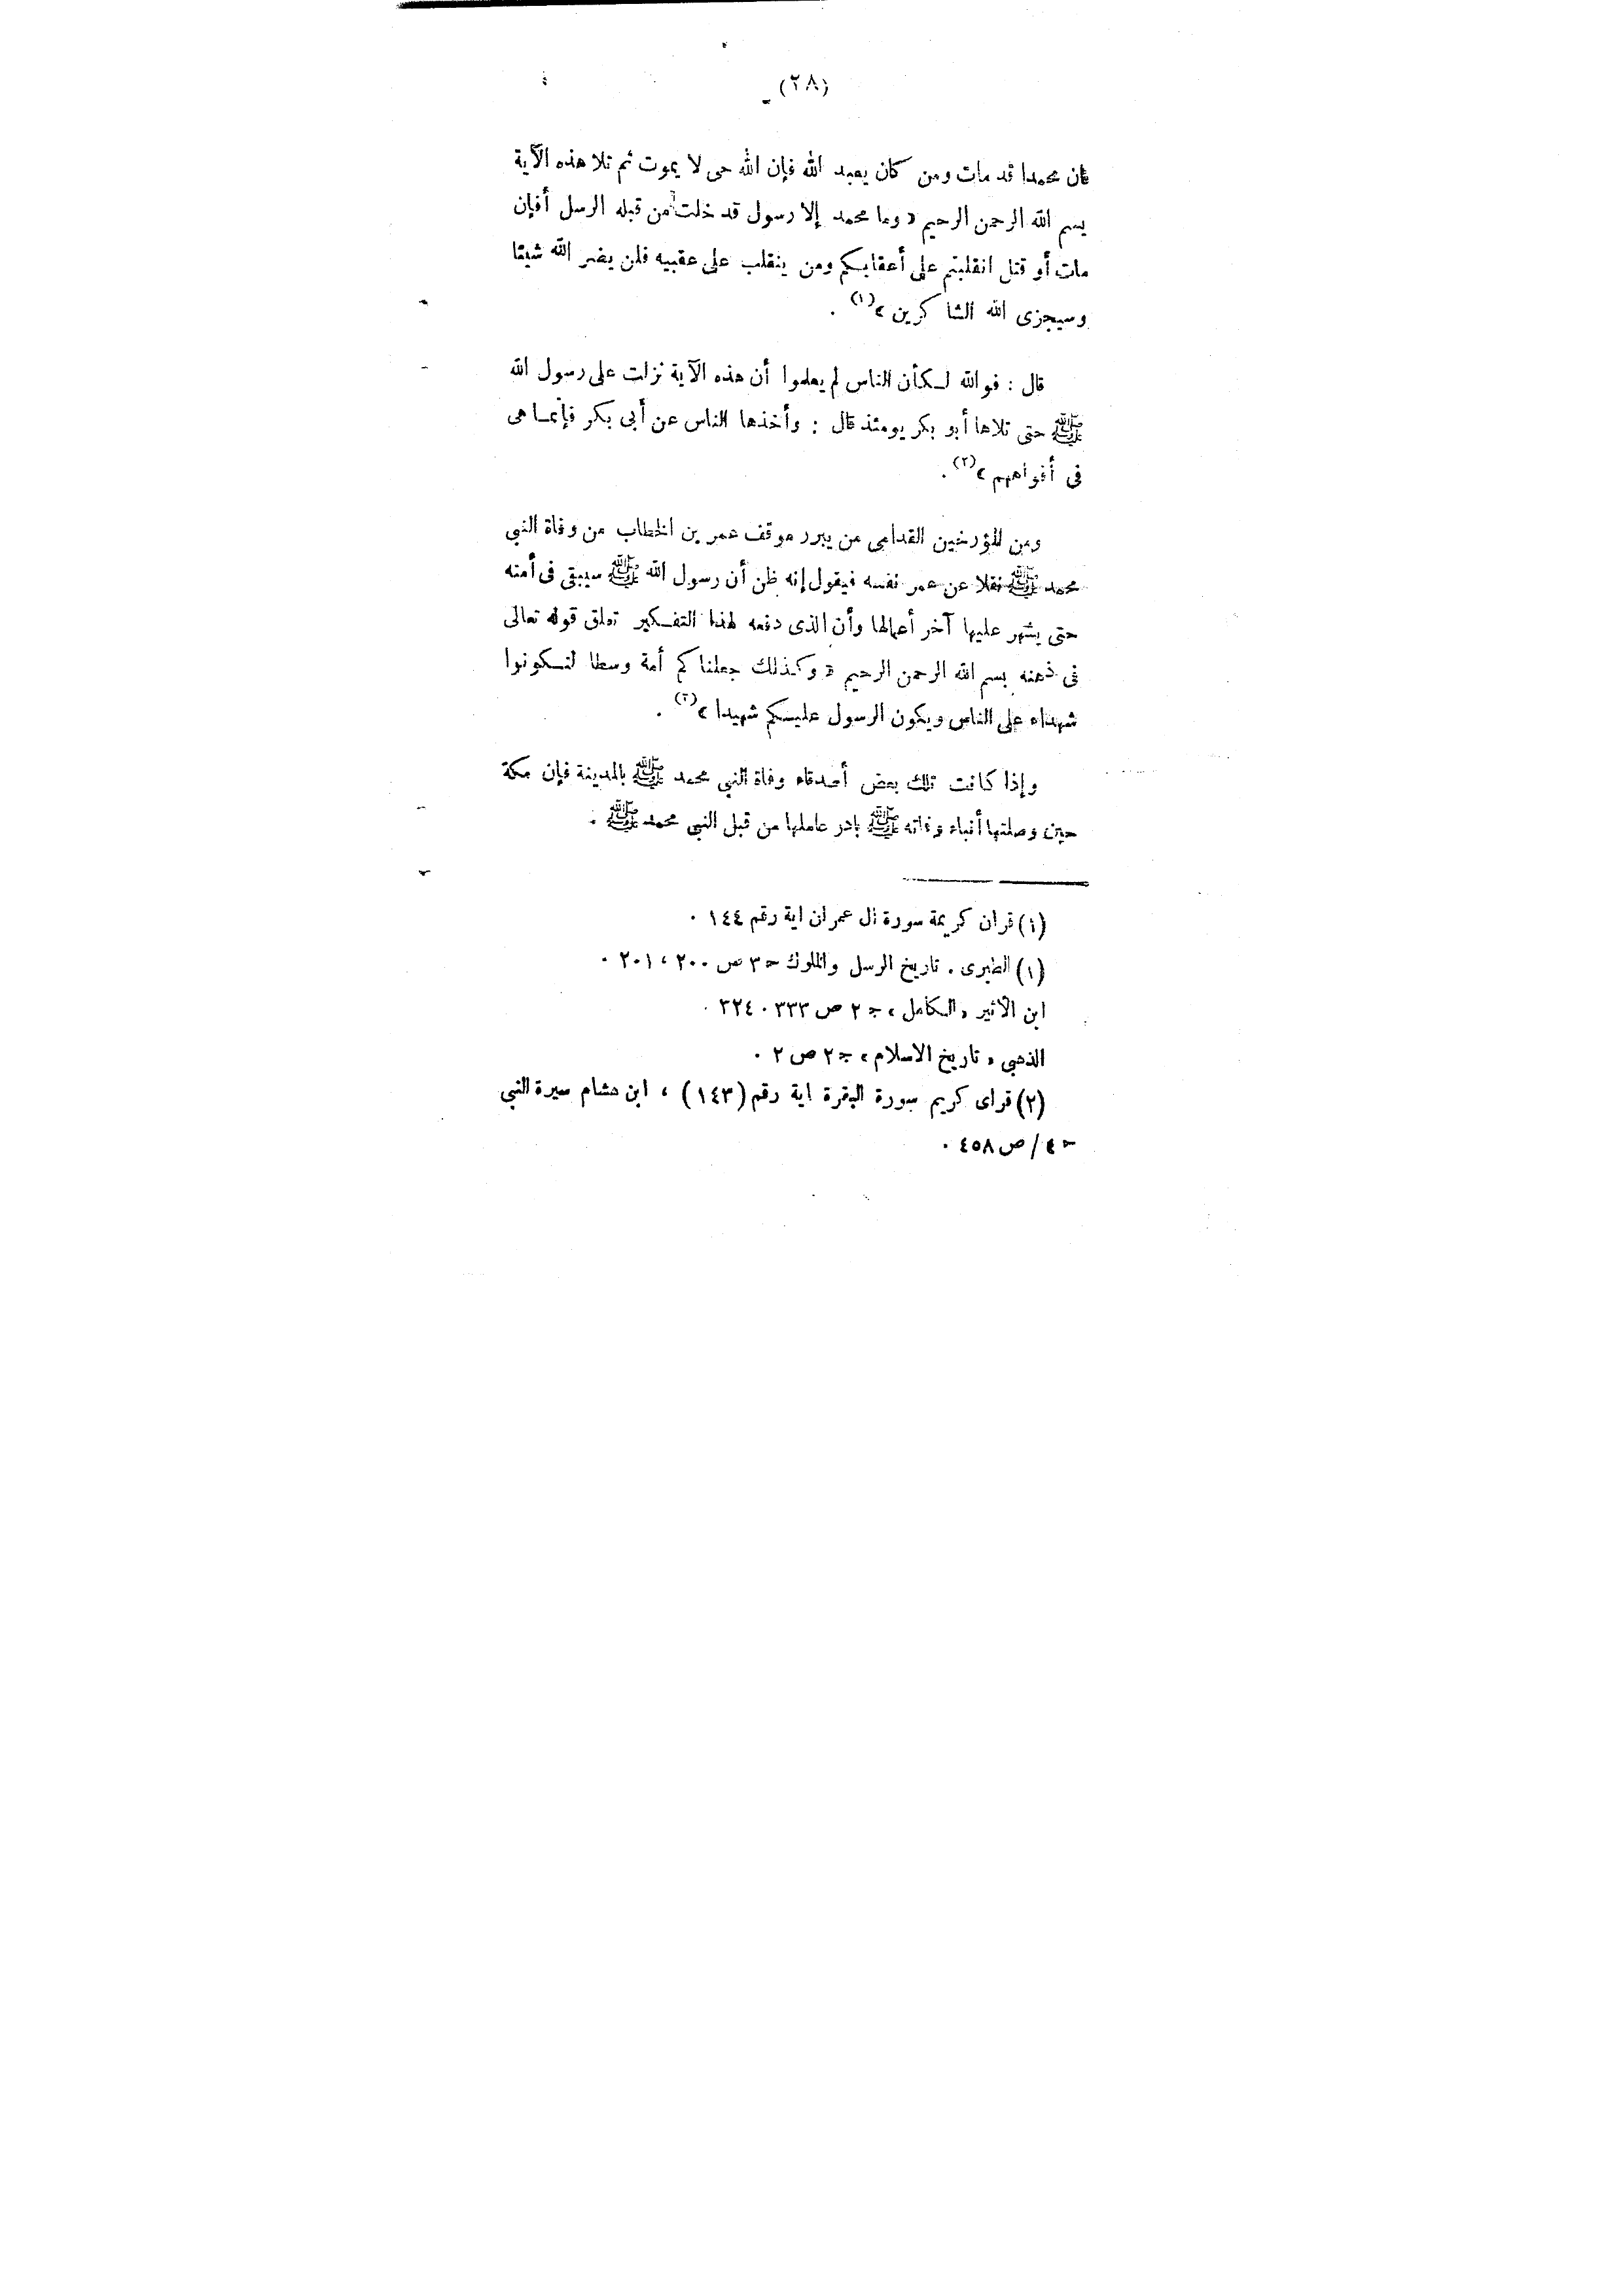 (٢٨)
فإن محمدا قد مات ومن كان يعبد الله فإن الله حى لا يموت ثم تلا هذه الآية
بسم الله الرحمن الرحيم « وما محمد إلا رسول قد خلت من قبله الرسل أفإن
مات أو قتل انقلبتم على أعقابكم ومن ينقلب على عقبيه فلن يضر الله شيئا
وسيجزى الله الشاكرين »(١) .
قال : فوالله لكأن الناس لم يعلموا أن هذه الآية نزلت على رسول الله
ﷺ حتى تلاها أبو بكر يومئذ قال : وأخذها الناس عن أبى بكر فإنما هى
فى أفواههم »(٢) .
ومن المؤرخين القدامى من يبرر موقف عمر بن الخطاب من وفاة النبى
محمد ﷺ نقلا عن عمر نفسه فيقول إنه ظن أن رسول الله ﷺ سيبقى فى أمته
حتى يشهر عليها آخر أعمالها وأن الذى دفعه لهذا التفكير تعلق قوله تعالى
فى ذهنه بسم الله الرحمن الرحيم « وكذلك جعلناكم أمة وسطا لتكونوا
شهداء على الناس ويكون الرسول عليكم شهيدا »(٣) .
وإذا كانت تلك بعض أصدقاء وفاة النبى محمد ﷺ بالمدينة فإن مكة
حين وصلتها أنباء وفاته ﷺ بادر عاملها من قبل النبى محمد ﷺ .
(١) قران كريمة سورة ال عمران اية رقم ١٤٤ .
(١) الطبرى . تاريخ الرسل والملوك ح ٣ ص ٢٠٠ ، ٢٠١ .
ابن الأثير « الكامل » ج ٢ ص ٣٣٣ . ٣٢٤ .
الذهبي « تاريخ الاسلام » ج ٢ ص ٢ .
(٢) قراى كريم سورة البقرة اية رقم (١٤٣) ، ابن هشام سيرة النبي
ح ٤ / ص ٤٥٨ .